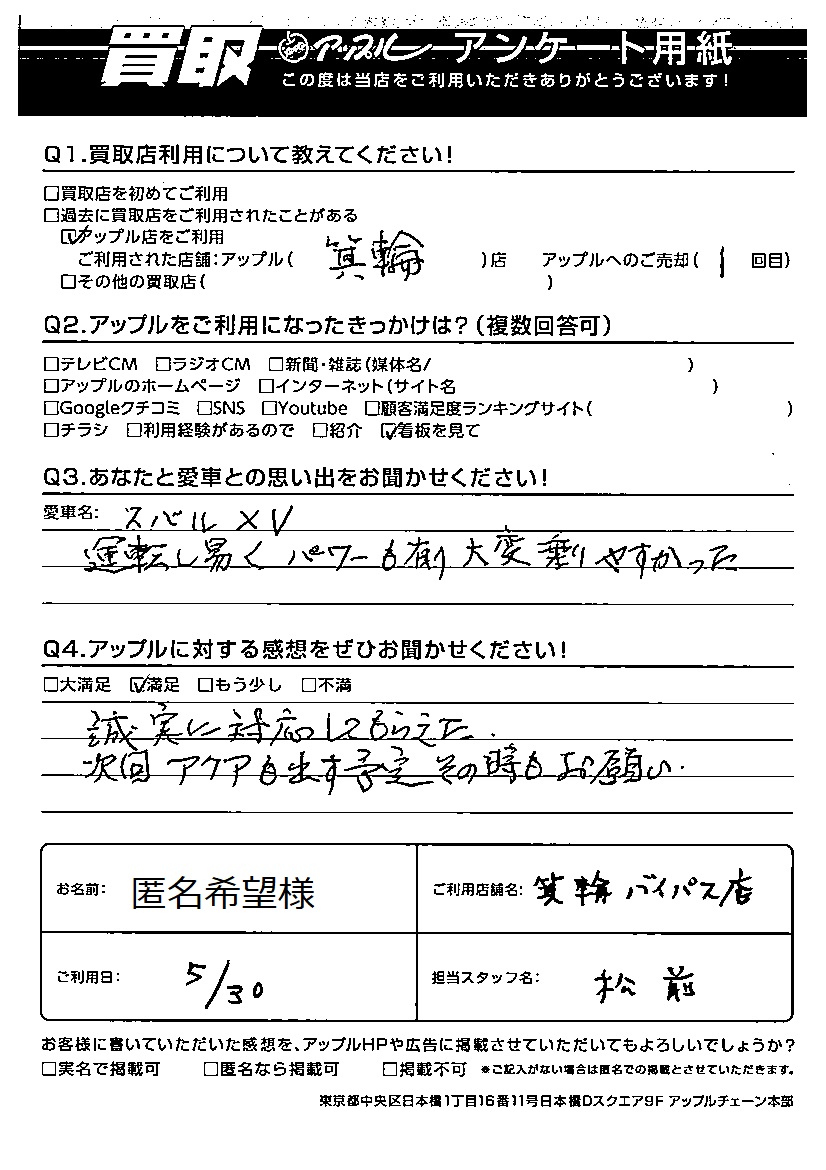 買取 アップル アンケート用紙
この度は当店をご利用いただきありがとうございます!
Q1.買取店利用について教えてください!
□買取店を初めてご利用
□過去に買取店をご利用されたことがある
☑アップル店をご利用
ご利用された店舗:アップル( 箕輪 )店 アップルへのご売却( 1 回目)
□その他の買取店( )
Q2.アップルをご利用になったきっかけは?(複数回答可)
□テレビCM □ラジオCM □新聞・雑誌(媒体名/ )
□アップルのホームページ □インターネット(サイト名 )
□Googleクチコミ □SNS □Youtube □顧客満足度ランキングサイト( )
□チラシ □利用経験があるので □紹介 ☑看板を見て
Q3.あなたと愛車との思い出をお聞かせください!
愛車名: スバル XV
運転し易く パワーも有り 大変 乗りやすかった
Q4.アップルに対する感想をぜひお聞かせください!
□大満足 ☑満足 □もう少し □不満
誠実に対応してもらえた.
次回 アクアも出す予定 その時もお願い.
お名前: 匿名希望様 ご利用店舗名: 箕輪バイパス店
ご利用日: 5/30 担当スタッフ名: 松前
お客様に書いていただいた感想を、アップルHPや広告に掲載させていただいてもよろしいでしょうか?
□実名で掲載可 □匿名なら掲載可 □掲載不可 ※ご記入がない場合は匿名での掲載とさせていただきます。
東京都中央区日本橋1丁目16番11号日本橋Dスクエア9F アップルチェーン本部